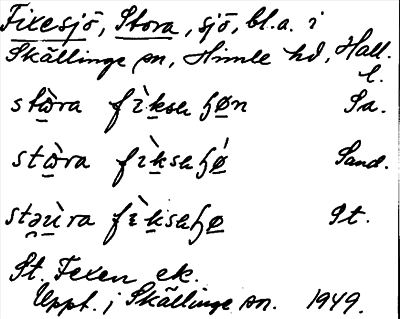 Fixesjö, Stora, sjö, bl.a. i
Skällinge sn, Himle hd, Hall.
l.
stæ̀ra fìkseɧøn Sa.
stæ̀ra fìkseɧǿ Sand.
stəùra fìkseɧø St.
St. Fexen ek.
Uppt. i Skällinge sn. 1949.